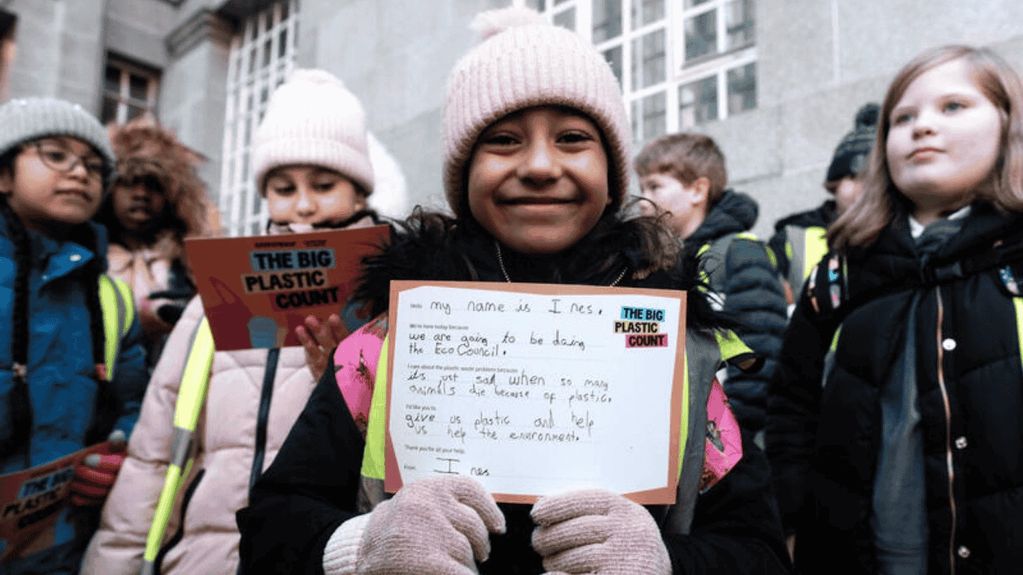 GREENPEACE
THE BIG
PLASTIC
COUNT
Hello my name is Ines.
We're here today because
we are going to be doing
the EcoCouncil.
I care about the plastic waste problem because
it's just sad when so many
animals die because of plastic.
I'd like you to
give us plastic and help
us help the environment.
Thank you for all your help,
From: Ines
THE BIG
PLASTIC
COUNT
THE BIG
PLASTIC
COUNT